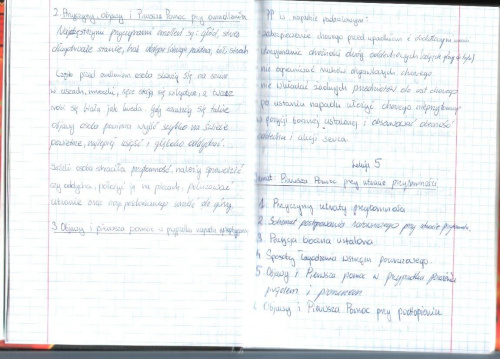 2. Przyczyny objawy i Pierwsza Pomoc przy omdleniach.
Najczęstszymi przyczynami omdleń są: głód, strach
długotrwałe stanie, brak dopływu świeżego powietrza, ból
Często przed omdleniem osoba skarży się na szum
w uszach, mroczki, ręce stają się wilgotne, a twarz
robi się biała jak kreda gdy nasuwają się takie
objawy osoba powinna wyjść szybko na świeże
powietrze, najlepiej usiąść i głęboko oddychać.
Jeżeli osoba straciła przytomność, należy sprawdzić
czy oddycha, położyć ją na plecach, poluzować
ubranie oraz nogi poszkodowanego unieść do góry.
3. Objawy i pierwsza pomoc w przypadku napadu
PP w napadzie padaczkowym:
zabezpieczenie chorego przed upadkiem i
utrzymanie drożności dróg oddechowych
nie ograniczać ruchów drgawkowych chorego
nie wkładać żadnych przedmiotów do ust chorego
po ustaniu napadu ułożyć chorego nieprzytomnego
w pozycji bocznej ustalonej i obserwować obecność
oddechu i akcji serca
Lekcja 5
Temat: Pierwsza Pomoc przy utracie przytomności
1. Przyczyny utraty przytomności
2. Schemat postępowania ratowniczego przy utracie przytomności.
3. Pozycja boczna ustalona.
4. Sposoby łagodzenia wstrząsu pourazowego.
5. Objawy i Pierwsza pomoc w przypadku porażenia
prądem i piorunem
6. Objawy i Pierwsza Pomoc przy podtopieniu